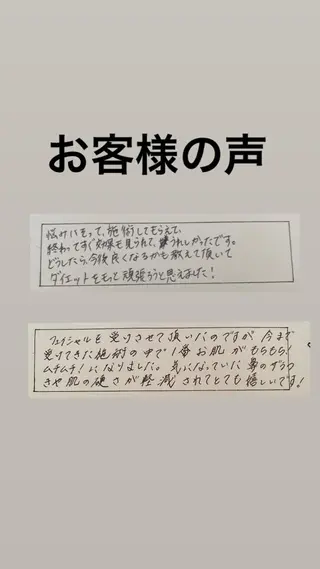 お客様の声
悩みにそって、施術してもらえて、
終わってすぐ効果も見られて、嬉しかったです。
どうしたら、今後良くなるかも教えて頂いて
ダイエットをもっと頑張ろうと思えました！
フェイシャルを受けさせて頂いたのですが今まで
受けてきた施術の中で1番お肌がもちもち！
ムチムチ！になりました。気になっていた鼻のザラつ
きや肌の硬さが軽減されてとても嬉しいです！